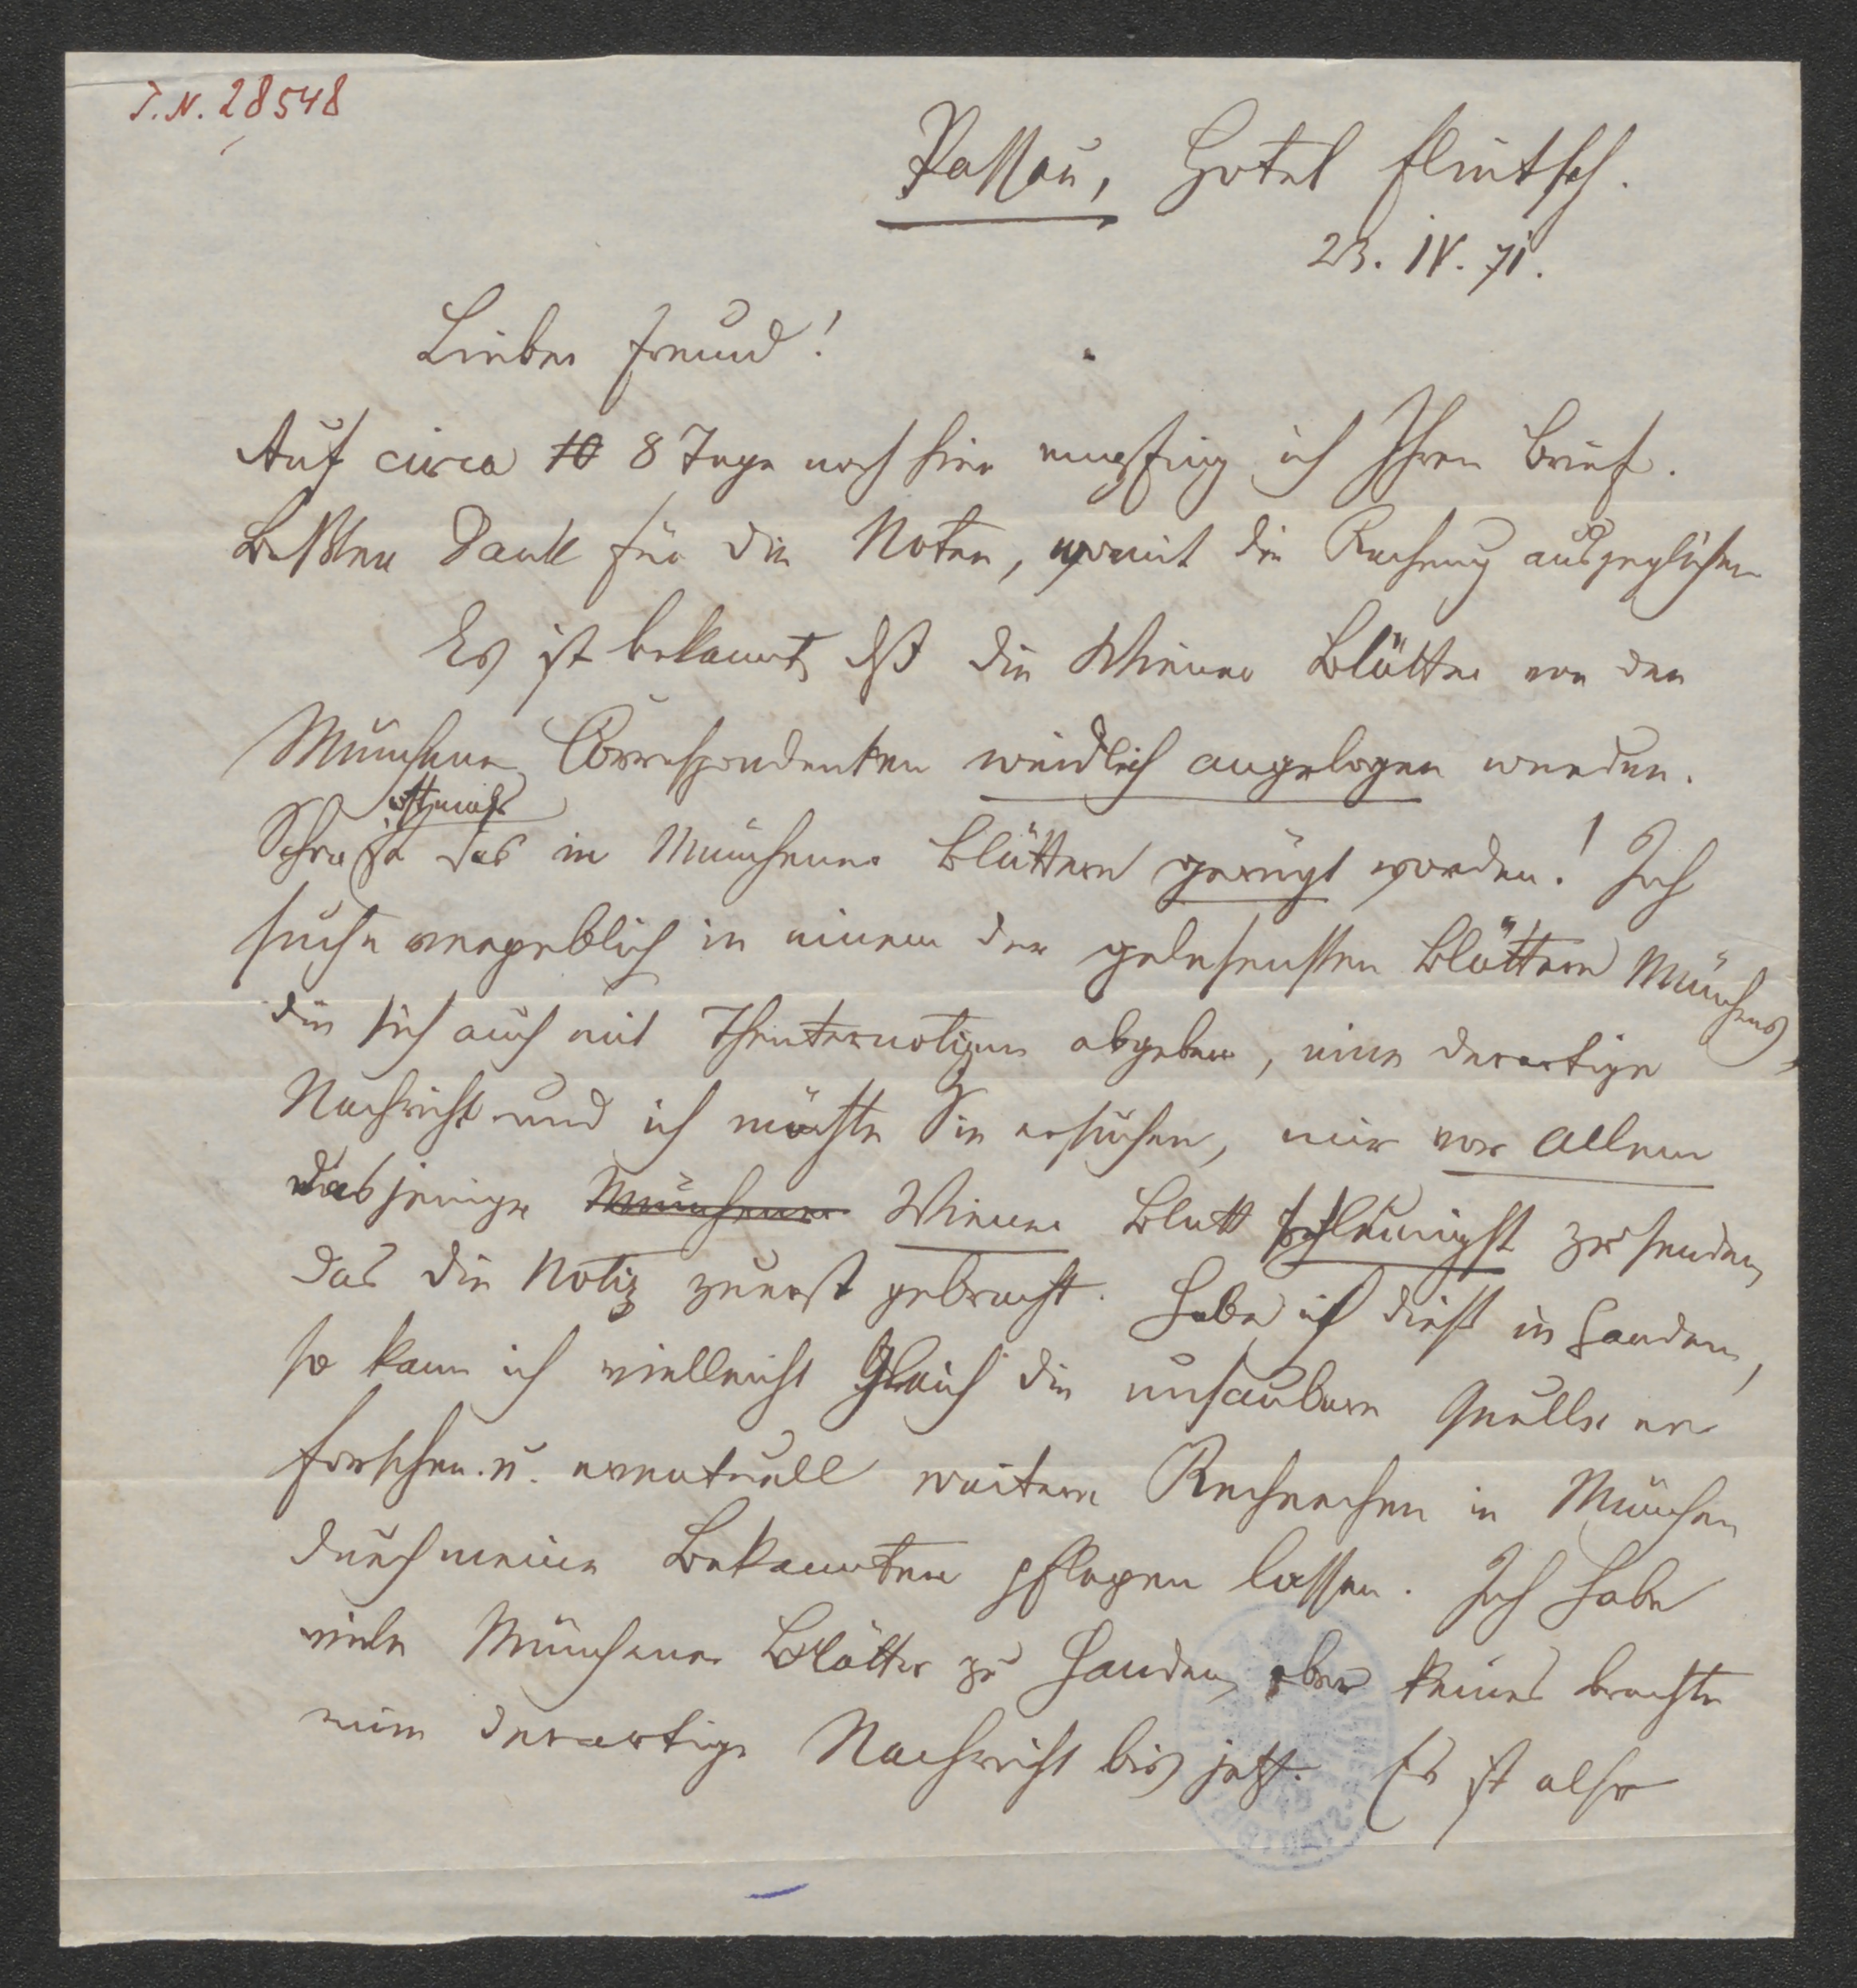 I.N. 28548
Passau, Hotel Flintsch.
23. IV. 71.
Lieber Freund!
Auf circa 10 8 Tage noch hier empfing ich Ihren Brief.
Besten Dank für die Noten, womit die Rechnung ausgeglichen
Es ist bekannt, dß die Wiener Blätter von den
Münchner Correspondenten weidlich angelogen werden.
oftmals
das in Münchener Blättern gerügt worden! Ich
suche vergeblich in einem der gelesensten Blättern Münchens,
die sich auch mit Theaternotizen abgeben, eine derartige
Nachricht und ich möchte Sie ersuchen, mir vor allem
dasjenige Münchener Wiener Blatt schleunigst zu senden,
das die Notiz zuerst gebracht. Habe ich dieß in Handen,
so kann ich vielleicht gleich die unsaubere Quelle er
forschen u. eventuell weitere Recherchen in München
durch meine Bekannten pflegen lassen. Ich habe
viele Münchener Blätter zu Handen, aber keines brachte
eine derartige Nachricht bis jetzt. Es ist also